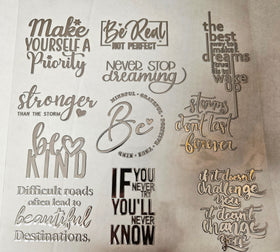 Make
YOURSELF A
Priority
Be Real
NOT PERFECT
Never Stop
dreaming
the
best
way to
make
dreams
true
is to
wake
up
stronger
THAN THE STORM
MINDFUL • GRATEFUL
TRUE • KIND
Be
storms
don't last
forever
be
KIND
Difficult roads
often lead to
beautiful
Destinations.
IF YOU
NEVER
TRY
YOU'LL
NEVER
KNOW
if it doesn't
challenge
you
it doesn't
change